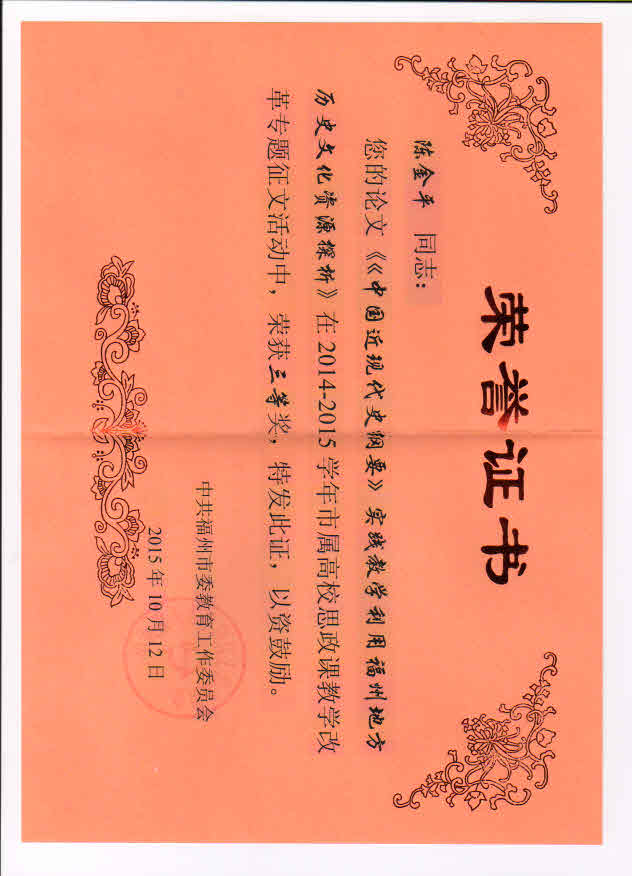 荣誉证书
陈金平 同志：
您的论文《《中国近现代史纲要》实践教学利用福州地方
历史文化资源探析》在2014-2015学年市属高校思政课教学改
革专题征文活动中，荣获三等奖，特发此证，以资鼓励。
中共福州市委教育工作委员会
2015年10月12日